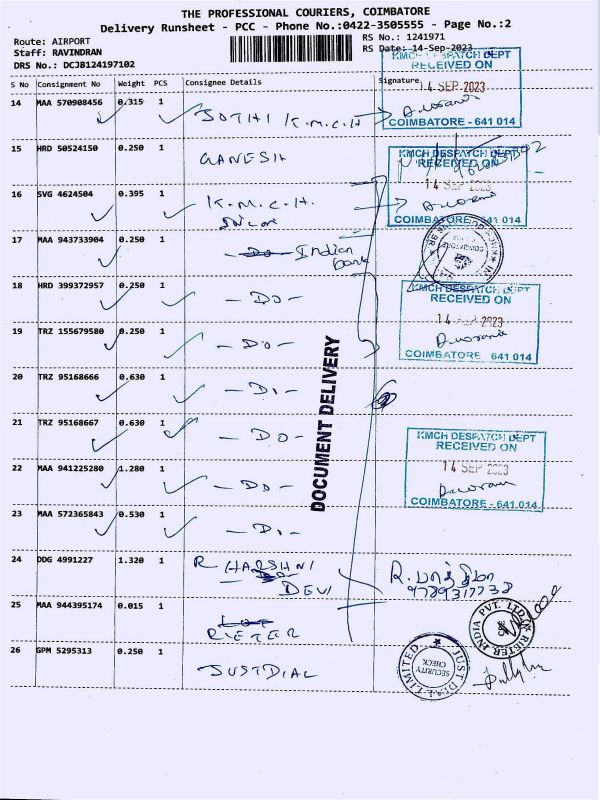 THE PROFESSIONAL COURIERS, COIMBATORE
Delivery Runsheet - PCC - Phone No.:0422-3505555 - Page No.:2
Route: AIRPORT
RS No.: 1241971
Staff: RAVINDRAN
RS Date: 14-Sep-2023
DRS No.: DCJB124197102
S No Consignment No Weight PCS Consignee Details Signature
KMCH DESPATCH DEPT
RECEIVED ON
14 SEP 2023
COIMBATORE - 641 014
14 MAA 570908456 0.315 1 JOTHI K.M.C.H
15 HRD 50524150 0.250 1 GANESH
KMCH DESPATCH DEPT
RECEIVED ON
14 SEP 2023
COIMBATORE - 641 014
16 SVG 4624504 0.395 1 K.M.C.H.
17 MAA 943733904 0.250 1 Indian
Bank
18 HRD 399372957 0.250 1 - DO -
KMCH DESPATCH DEPT
RECEIVED ON
14 SEP 2023
COIMBATORE - 641 014
19 TRZ 155679580 0.250 1 - DO -
20 TRZ 95168666 0.630 1 - DO -
21 TRZ 95168667 0.630 1 - DO -
DOCUMENT DELIVERY
KMCH DESPATCH DEPT
RECEIVED ON
14 SEP 2023
COIMBATORE - 641 014
22 MAA 941225280 1.280 1 - DO -
23 MAA 572365843 0.530 1 - DO -
24 DDG 4991227 1.320 1 R HARSHNI
DEVI
25 MAA 944395174 0.015 1 RIETER
RIETER INDIA PVT. LTD.
26 GPM 5295313 0.250 1 JUSTDIAL
JUST DIAL LIMITED
SECURITY
CHECK